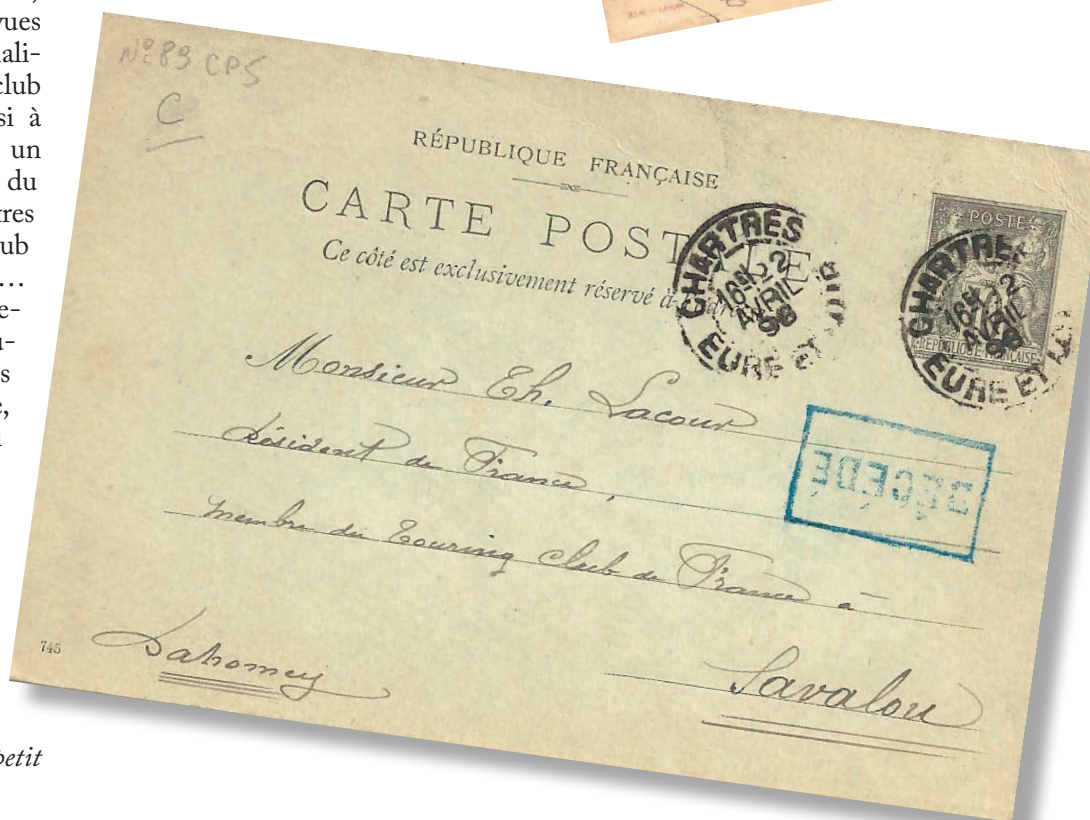 vues
ali-
club
si à
un
du
tres
ub
...
e-
u-
s
e,
petit
N° 89 CPS
C
RÉPUBLIQUE FRANÇAISE
CARTE POST LE
Ce côté est exclusivement réservé à
CHARTRES
16H 22
AVRIL
98
EURE ET
POSTE
RÉPUBLIQUE FRANÇAISE
CHARTRES
16H 22
AVRIL
98
EURE ET
Monsieur Ch. Lacour
Résident de France,
DÉCÉDÉ
membre du Touring Club de France à
745
Dahomey
Savalou